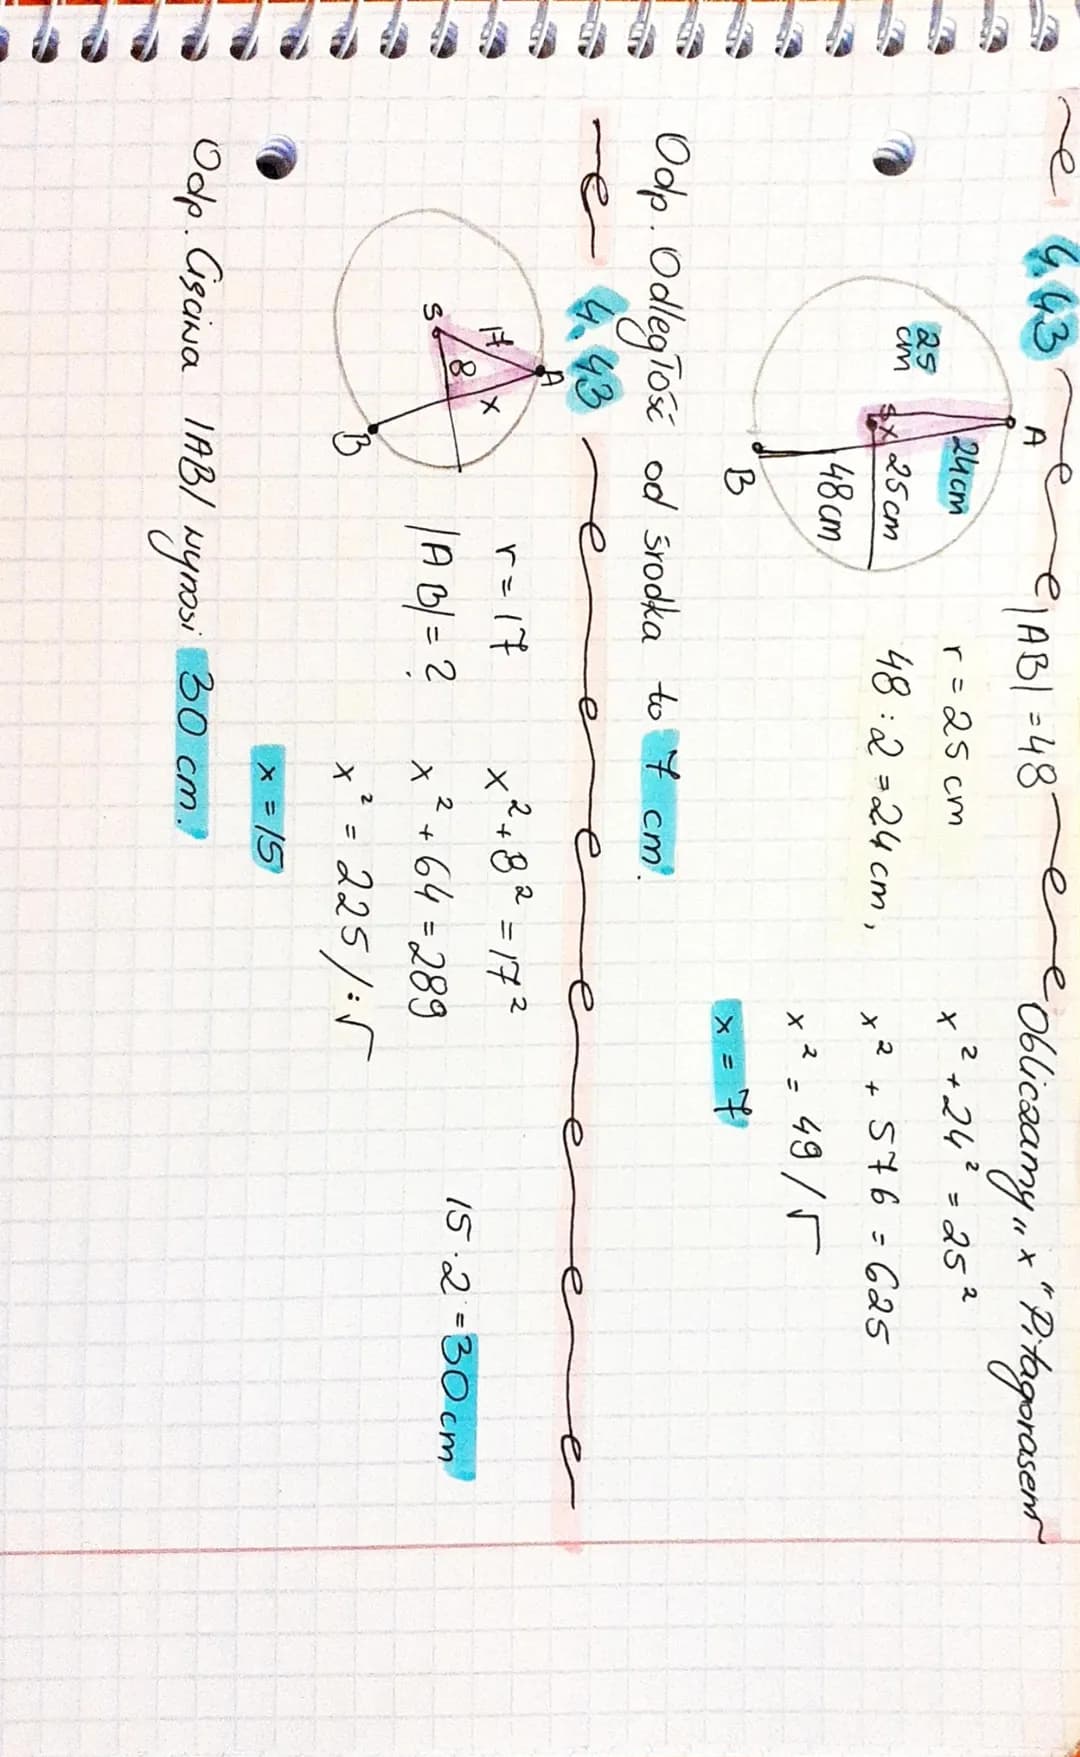 4.43 |AB| = 48 Obliczamy „x" Pitagorasem
A
24cm
25 cm
S x 25cm
48cm
B
r = 25 cm
48 : 2 = 24 cm,
x² + 24² = 25²
x² + 576 = 625
x² = 49 /√
x = 7
Odp. Odległość od środka to 7 cm.
4.43
A
17 x
S 8
B
r = 17
|AB| = ?
x² + 8² = 17²
x² + 64 = 289
x² = 225 /:√
x = 15
15 · 2 = 30 cm
Odp. Cięciwa |AB| wynosi 30 cm.